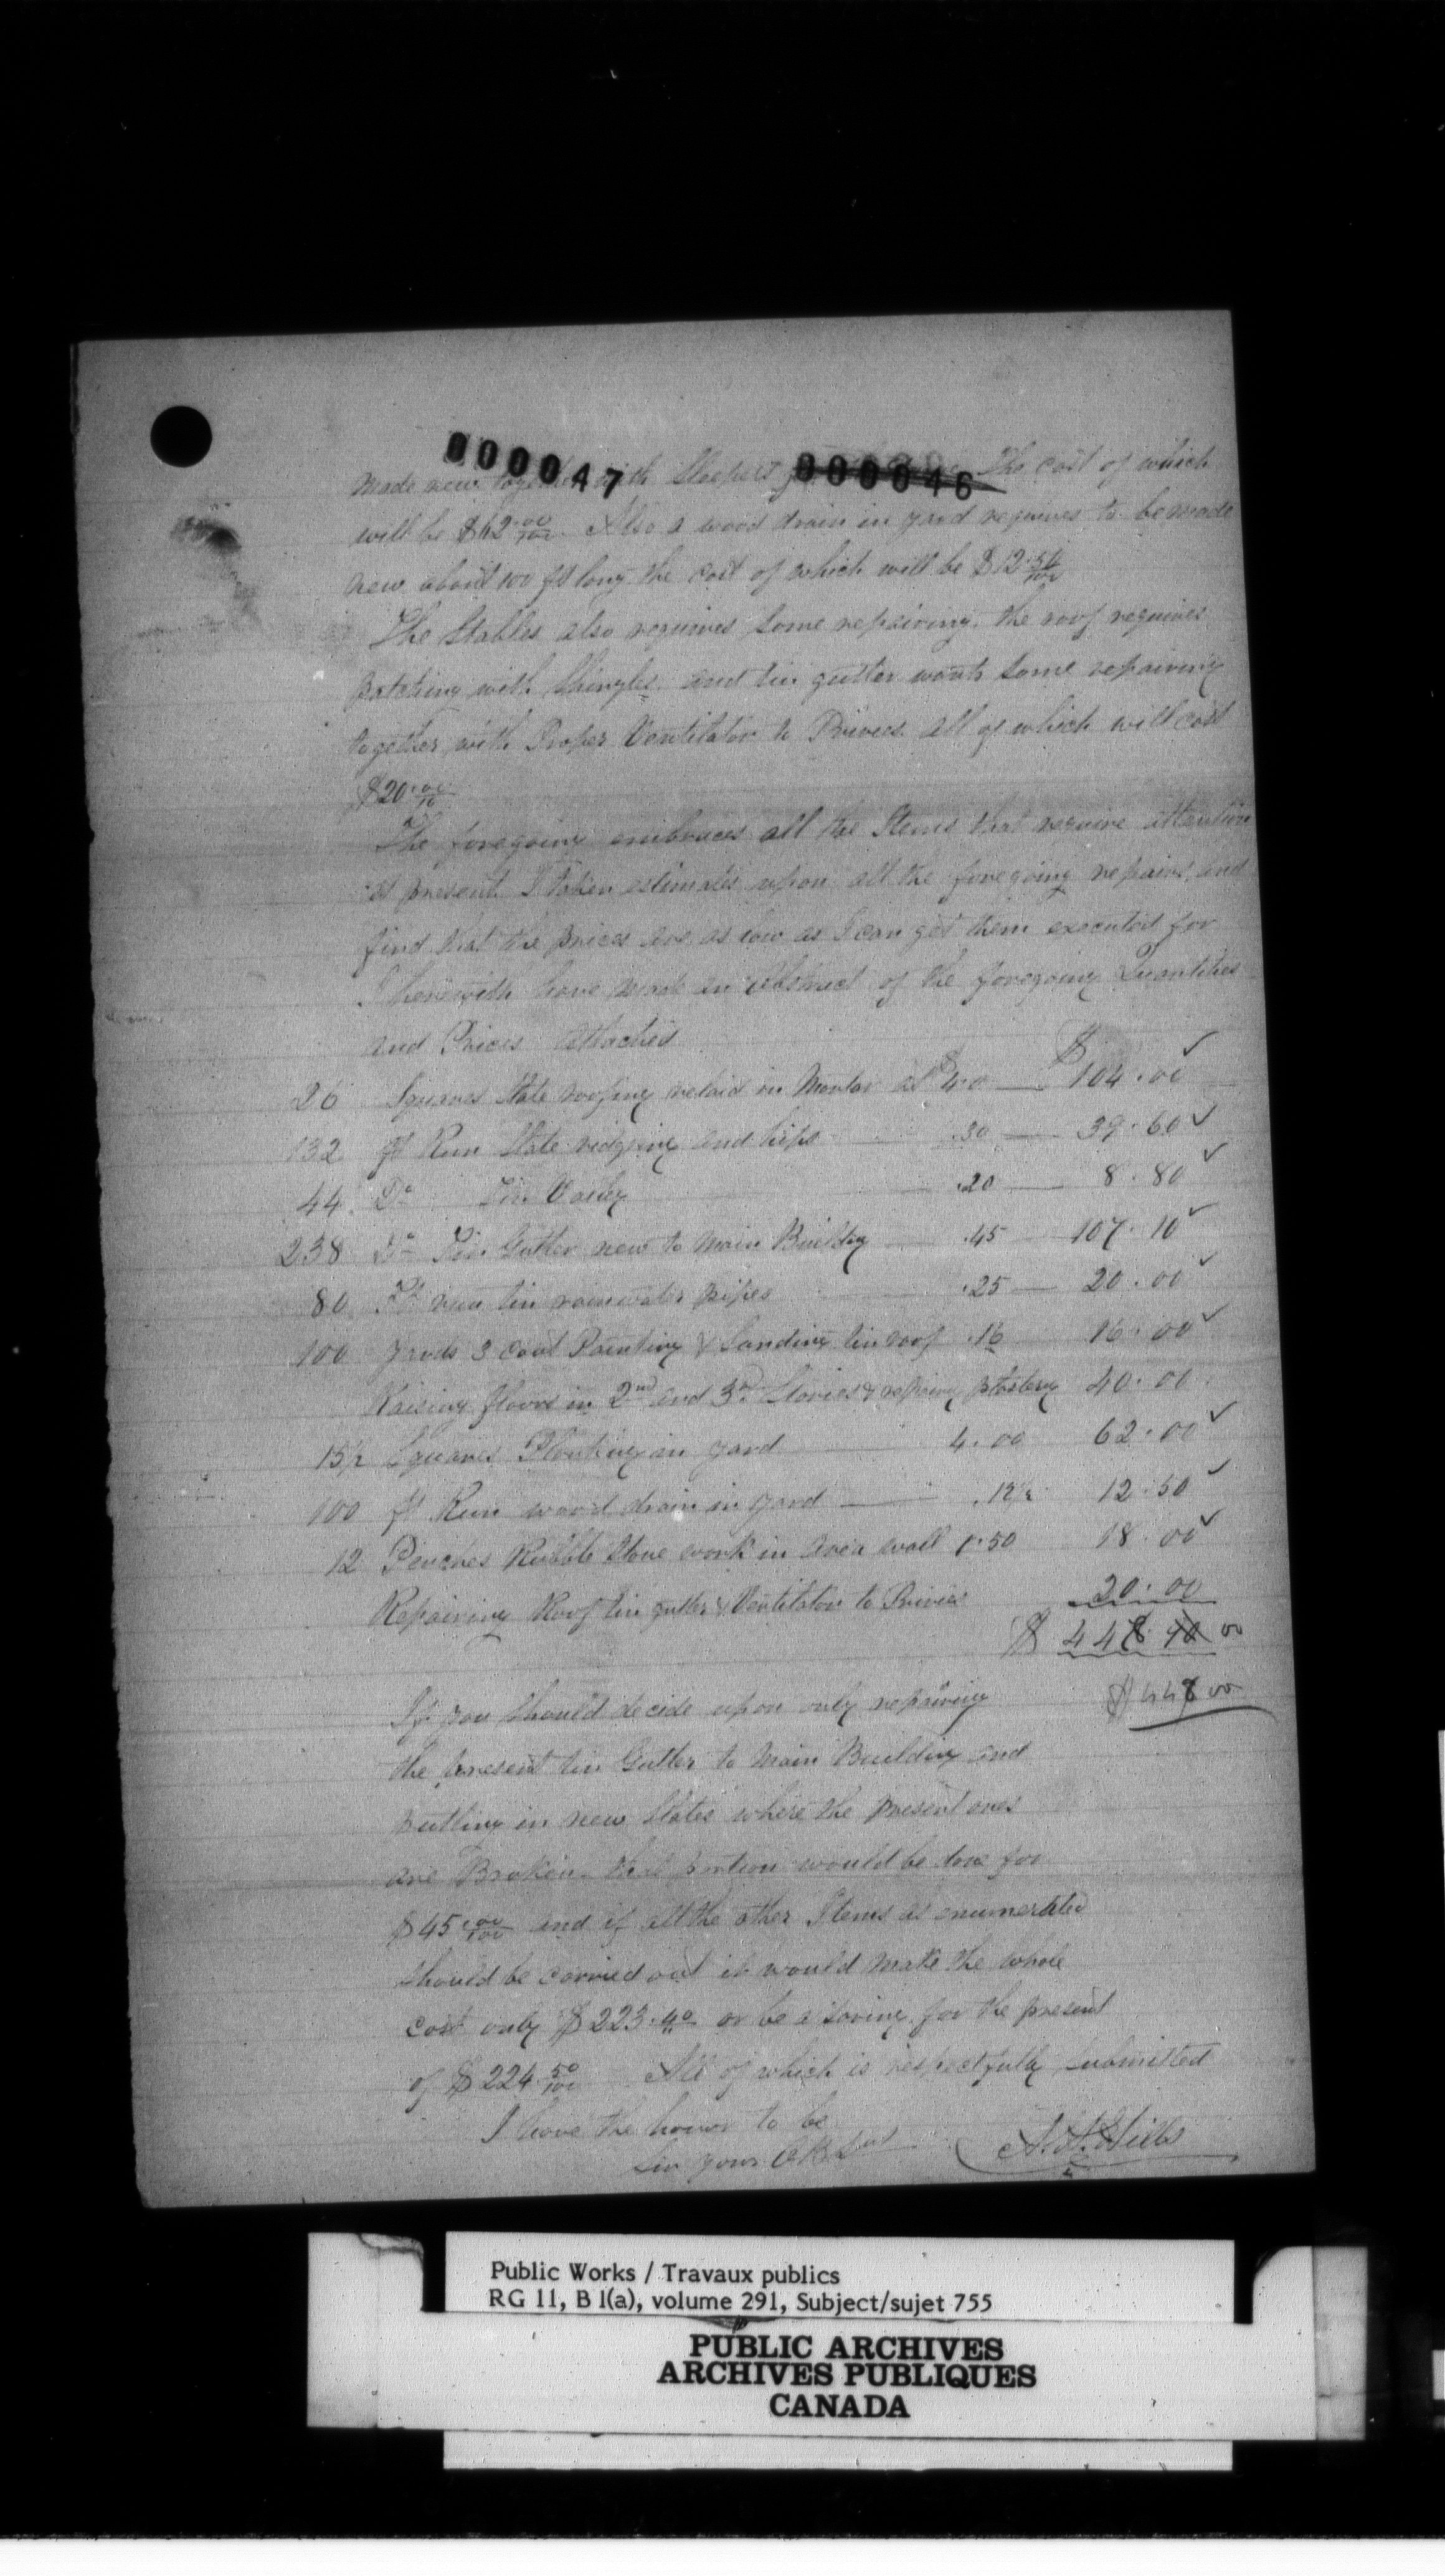 000047 000046
made new together with Sleepers The cost of which
will be $62 00/100. Also a wood drain in yard requires to be made
new about 100 ft long the cost of which will be $12.50/100
The Stables also requires some repairing, the roof requires
patching with Shingles and tin gutter wants some repairing
together with Proper Ventilator to Privies all of which will cost
$20.00/10
The foregoing embraces all the Items that require attention
at present I taken estimates upon all the foregoing repairs, and
find that the prices are as low as I can get them executed for
I herewith have made an abstract of the foregoing Quantities
and Prices attached
26 Squares Slate roofing relaid in Mortar at $4.0 — $104.00 ✓
132 ft Run Slate ridging and hips .30 — 39.60 ✓
44 Do Tin Valley .20 — 8.80 ✓
238 Do Tin Gutter new to Main Building .45 107.10 ✓
80 Ft run tin rainwater pipes .25 — 20.00 ✓
100 yards 3 coat Painting & Sanding tin roof .16 16.00 ✓
Raising floors in 2nd and 3rd Stories & repairing plastering 40.00
15½ Squares Planking in yard 4.00 62.00 ✓
100 ft Run wood drain in yard — .12½ 12.50 ✓
12 Perches Rubble Stone work in area wall 1.50 18.00 ✓
Repairing Roof tin gutter & Ventilator to Privies 20.00
$ 448 40 00
$448 00
If you should decide upon only repairing
the present tin Gutter to Main Building and
putting in new Slates where the present ones
are Broken that portion would be done for
$45.00/100 and if all the other Items as enumerated
should be carried out it would make the whole
cost only $223.40 or be a saving for the present
of $224.50/100 All of which is respectfully submitted
I have the honor to be
Sir your OB Svt
Public Works / Travaux publics
RG 11, B 1(a), volume 291, Subject/sujet 755
PUBLIC ARCHIVES
ARCHIVES PUBLIQUES
CANADA